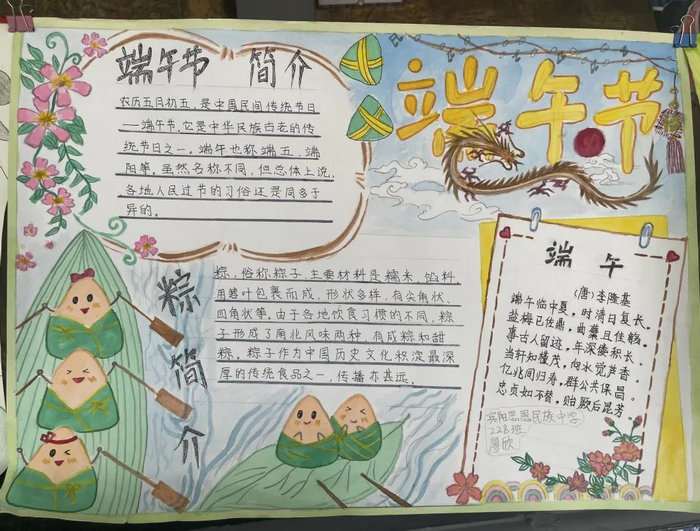 端午节 简介
农历五月初五,是中国民间传统节日
——端午节,它是中华民族古老的传
统节日之一。端午也称端五,端
阳等。虽然名称不同,但总体上说,
各地人民过节的习俗还是同多于
异的。
端午节
粽简介
粽,俗称粽子,主要材料是糯米、馅料,
用箬叶包裹而成,形状多样,有尖角状、
四角状等。由于各地饮食习惯的不同,粽
子形成了南北风味两种,有咸粽和甜
粽。粽子作为中国历史文化积淀最深
厚的传统食品之一,传播亦甚远。
端午
(唐)李隆基
端午临中夏,时清日复长。
盐梅已佐鼎,曲糵且传觞。
事古人留迹,年深缕积长。
当轩知槿茂,向水觉芦香。
亿兆同归寿,群公共保昌。
忠贞如不替,贻厥后昆芳
民族中学
228班
欣